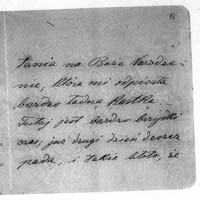 6
tania na Boże Narodze-
nie, która mi odpisała
bardzo ładną kartką.
Tutaj jest bardzo brzydki
czas, już drugi dzień deszcz
pada, i takie błoto, że